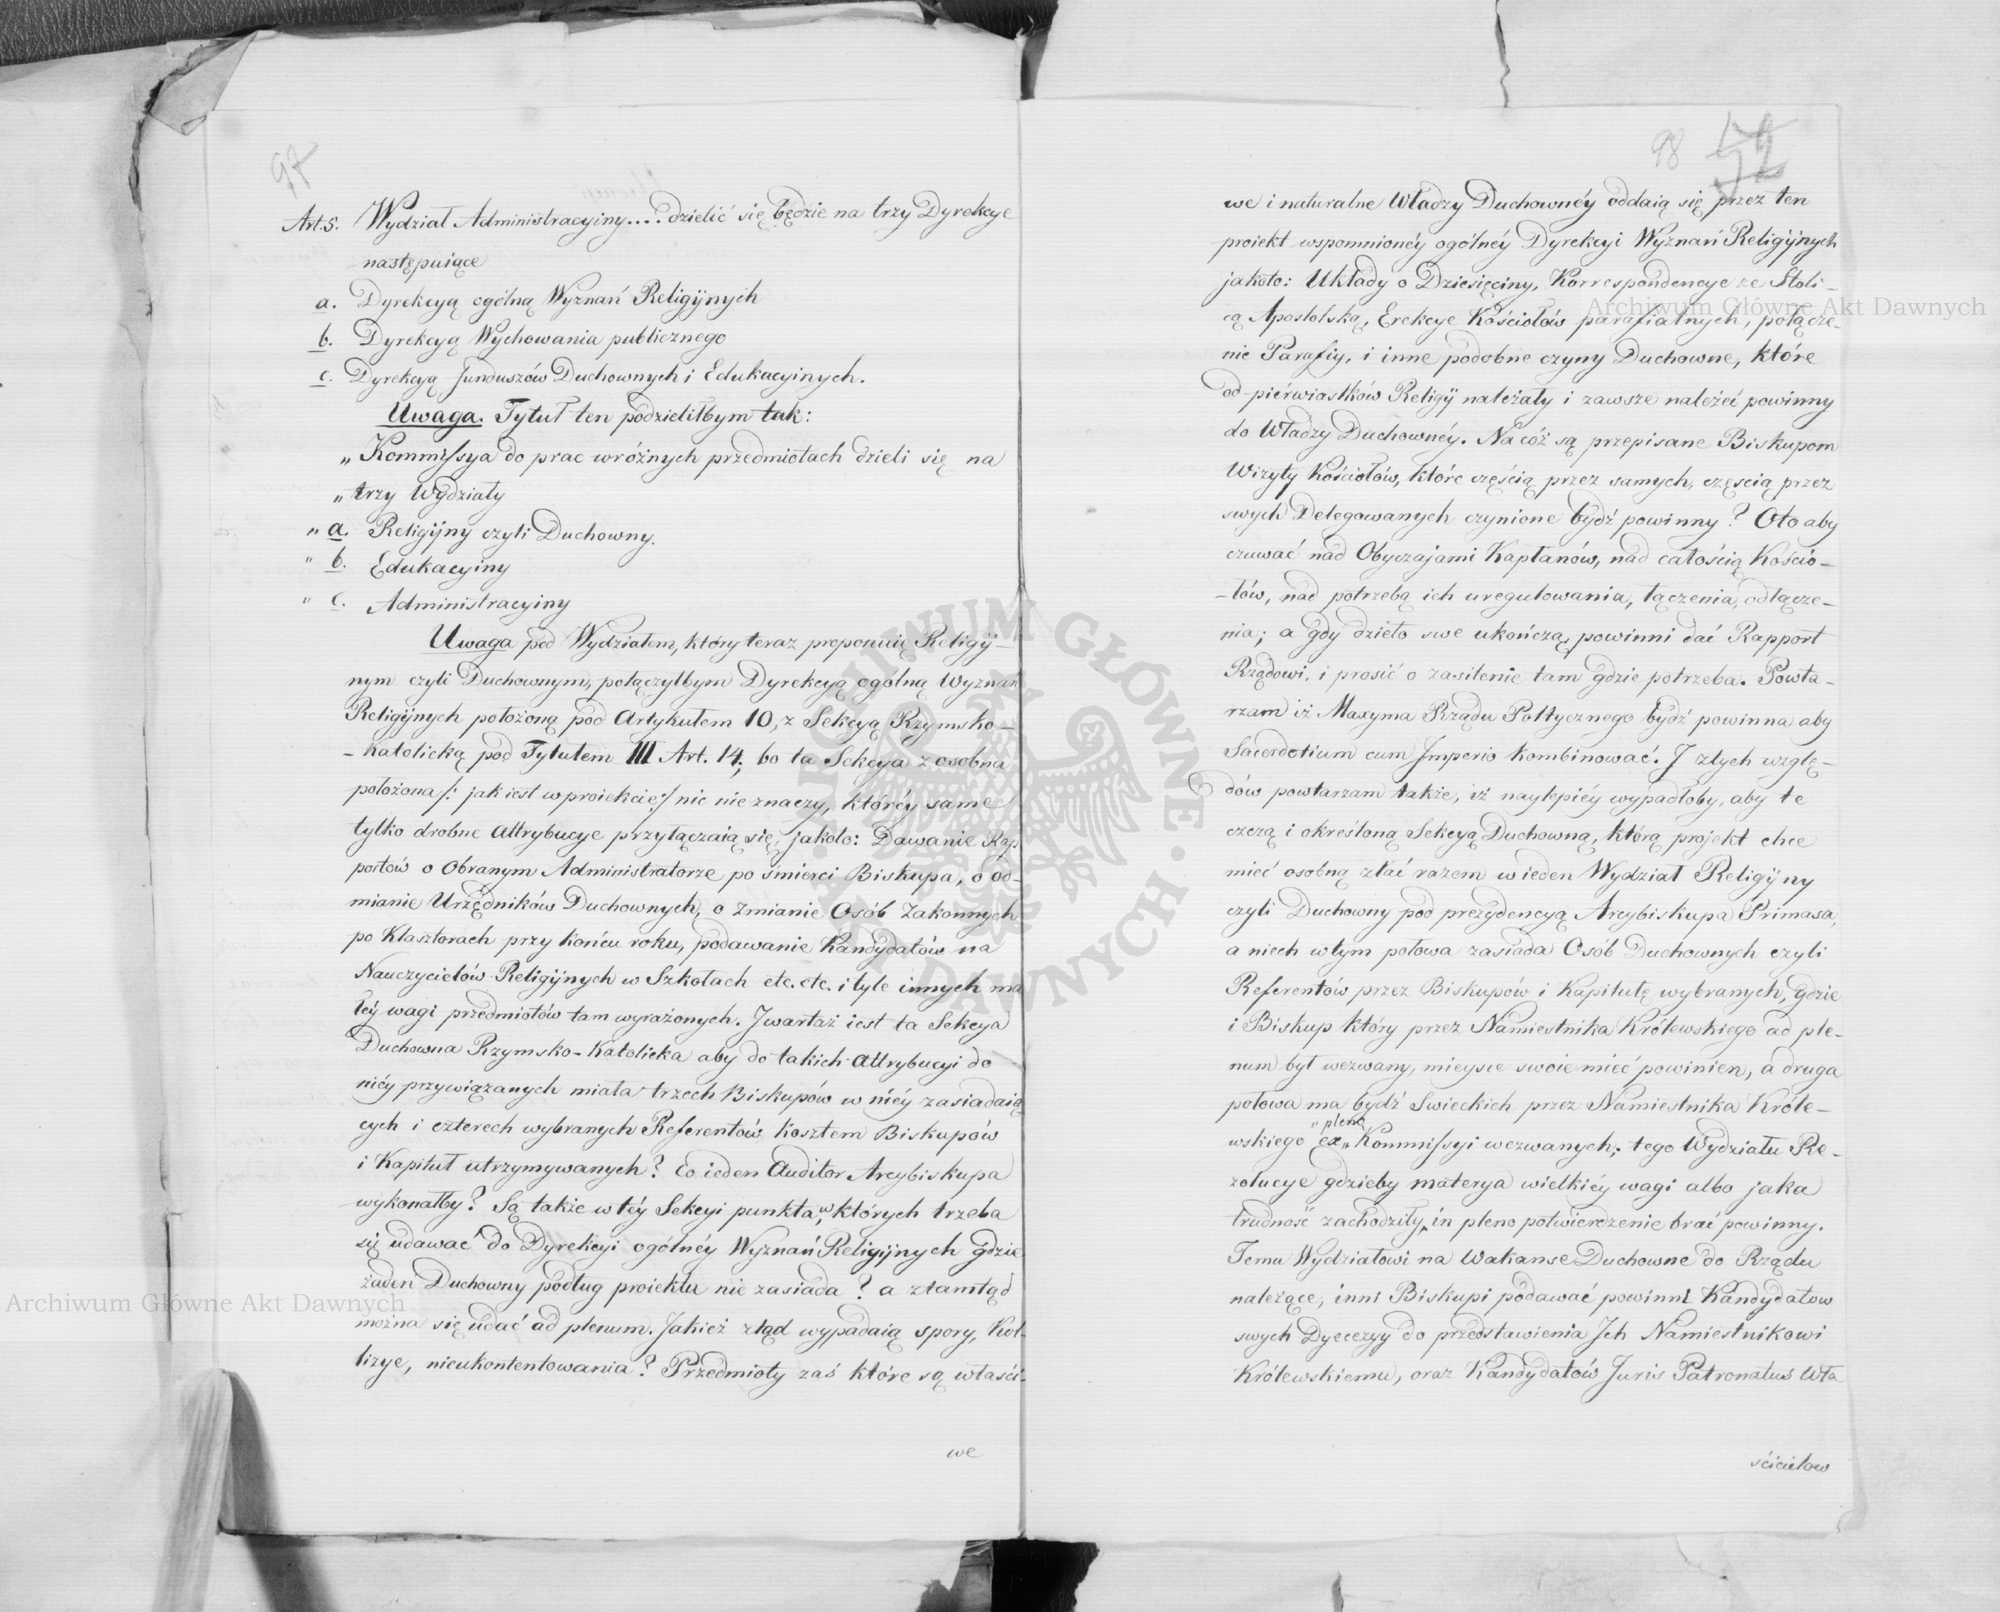 97
Art. 5. Wydział Administracyiny.... dzielić się będzie na trzy Dyrekcye
następuiące
a. Dyrekcyą ogólną Wyznań Religiynych
b. Dyrekcyą Wychowania publicznego
c. Dyrekcyą Funduszów Duchownych i Edukacyinych.
Uwaga. Tytuł ten podzieliłbym tak:
„ Kommissya do prac wróżnych przedmiotach dzieli się na
„ trzy Wydziały
„ a. Religijny czyli Duchowny.
" b. Edukacyiny
" c. Administracyiny
Uwaga pod Wydziałem, który teraz proponuię Religij-
nym czyli Duchownym, połączyłbym Dyrekcyą ogólną Wyznań
Religijnych położoną pod Artykułem 10, z Sekcyą Rzymsko-
-Katolicką pod Tytułem III Art. 14; bo ta Sekcya zosobna
położona /: jak iest w proiekcie :/ nic nie znaczy, któréy same
tylko drobne attrybucye przyłączaią się, jakoto: Dawanie Rap
portów o Obranym Administratorze po śmierci Biskupa, o od-
mianie Urzędników Duchownych, o zmianie Osób Zakonnych
po Klasztorach przy końcu roku, podawanie Kandydatów na
Nauczycielów Religijnych w Szkołach etc. etc. i tyle innych ma
łéy wagi przedmiotów tam wyrażonych. J wartaż iest ta Sekcya
Duchowna Rzymsko-Katolicka aby do takich attrybucyi do
niéy przywiązanych miała trzech Biskupów w niéy zasiadaią
cych i czterech wybranych Referentów kosztem Biskupów
i Kapituł utrzymywanych? Co ieden Auditor Arcybiskupa
wykonałby? Są także w téy Sekcyi punkta, w których trzeba
się udawać do Dyrekcyi ogólnéy Wyznań Religijnych gdzie
żaden Duchowny podług proiektu nie zasiada? a ztamtąd
można się udać ad plenum. Jakież ztąd wypadaią spory, Kol-
lizye, nieukontentowania? Przedmioty zaś które są właści-
we
98
we i naturalne Władzy Duchownéy oddaią się przez ten
proiekt wspomnionéy ogólnéy Dyrekcyi Wyznań Religijnych
jakoto: Układy o Dziesięciny, Korrespondencye ze Stoli-
cą Apostolską, Erekcye Kościołów parafialnych, połącze-
nie Parafiy, i inne podobne czyny Duchowne, które
od pierwiastków Religij należały i zawsze należeć powinny
do Władzy Duchownéy. Na cóż są przepisane Biskupom
Wizyty Kościołów, które częścią przez samych, częścią przez
swych Delegowanych czynione bydź powinny? Oto aby
czuwać nad Obyczajami Kapłanów, nad całością Kościo-
-łów, nad potrzebą ich uregulowania, łączenia, odłącze-
nia; a gdy dzieło swe ukończą, powinni dać Rapport
Rządowi, i prosić o zasilenie tam gdzie potrzeba. Powta-
rzam iż Maxyma Rządu Politycznego bydź powinna aby
Sacerdotium cum Imperio kombinować. J ztych wzglę-
dów powtarzam także, iż naylepiéy wypadłoby, aby te
czczą i określoną Sekcyą Duchowną, którą projekt chce
mieć osobną złać razem w ieden Wydział Religijny
czyli Duchowny pod prezydencyą Arcybiskupa Primasa,
a niech w tym połowa zasiada Osób Duchownych czyli
Referentów przez Biskupów i Kapitułę wybranych, gdzie
i Biskup który przez Namiestnika Królewskiego ad ple-
num był wezwany, mieysce swoie mieć powinien, a druga
połowa ma bydź Swieckich przez Namiestnika Króle-
„ pleno
wskiego ex „ Kommissyi wezwanych; tego Wydziału Re-
zolucye gdzieby materya wielkiéy wagi albo jaka
trudność zachodziły, in pleno potwierdzenie brać powinny.
Temu Wydziałowi na Wakanse Duchowne do Rządu
należące, inni Biskupi podawać powinni Kandydatow
swych Dyecezyy do przedstawienia Jch Namiestnikowi
Królewskiemu, oraz Kandydatów Juris Patronatus Wła
ścicielow
Archiwum Główne Akt Dawnych
Archiwum Główne Akt Dawnych
ARCHIWUM GŁÓWNE AKT DAWNYCH